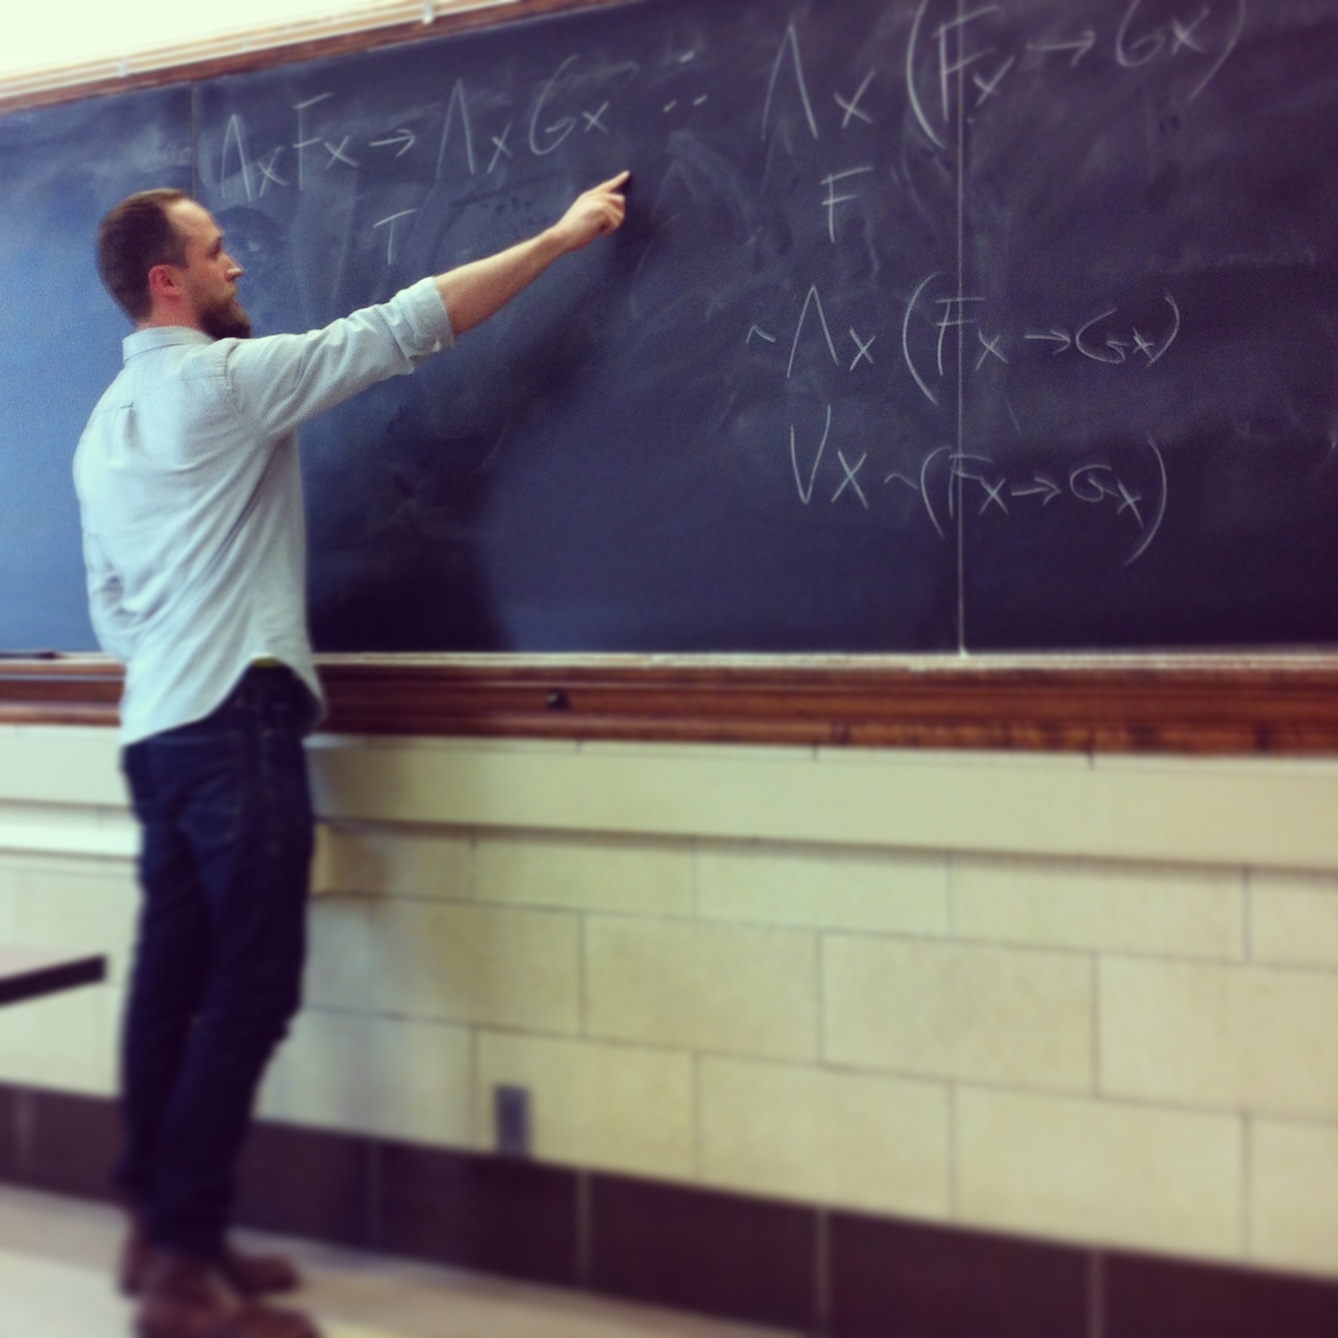 ΛxFx → ΛxGx ∴ Λx(Fx → Gx)
T F
~Λx(Fx → Gx)
Vx ~(Fx → Gx)